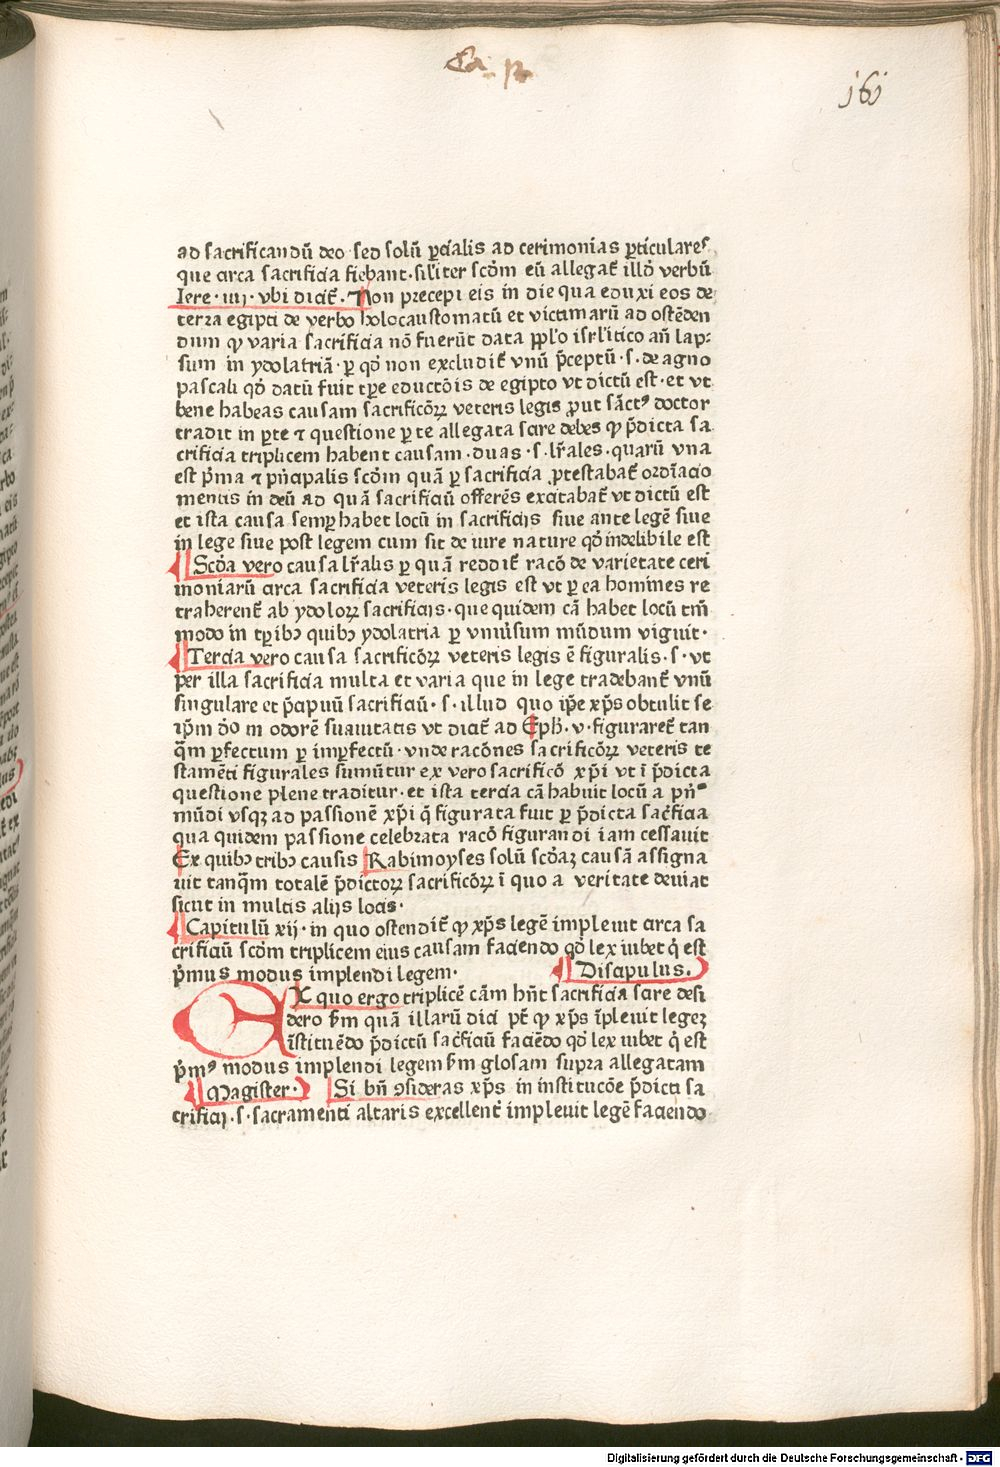 Ca. p̄
161
ad sacrificandū deo sed solū ꝑcialis ad cerimonias ꝑticulares
que circa sacrificia fiebant·sil'iter scd̄m eū allegat̄ illd̄ verbū
Iere·iiij·vbi dicit̄·Non precepi eis in die qua eduxi eos de
terra egipti de verbo holocaustomatū et victimarū ad ostēden
dum ꝙ varia sacrificia nō fuerūt data ppl'o isrl'itico an̄ lap-
sum in ydolatriā·ꝑ qd̄ non excludit̄ vnū p̄ceptū·s·de agno
pascali qd̄ datū fuit tꝑe eductōis de egipto vt dictū est·et vt
bene habeas causam sacrificōꝝ veteris legis ꝓut sāctꝰ doctor
tradit in ꝑte ⁊ questione ꝑ te allegata scire debes ꝙ p̄dicta sa
crificia triplicem habent causam·duas·s·lr̄ales·quarū vna
est p̄ma ⁊ pn̄cipalis scd̄m quā ꝑ sacrificia ꝓtestabat̄ ordīacio
mentis in deū ad quā sacrificiū offerēs excitabat̄ vt dictū est
et ista causa semꝑ habet locū in sacrificijs siue ante legē siue
in lege siue post legem cum sit de iure nature qd̄ indelibile est
Scd̄a vero causa lr̄alis ꝑ quā reddit̄ racō de varietate ceri
moniarū circa sacrificia veteris legis est vt ꝑ ea homines re
traherent̄ ab ydoloꝝ sacrificijs·que quidem cā habet locū tm̄
modo in tꝑibꝫ quibꝫ ydolatria ꝑ vniu̇sum mūdum viguit·
Tercia vero causa sacrificōꝝ veteris legis ē figuralis·s·vt
per illa sacrificia multa et varia que in lege tradebant̄ vnū
singulare et p̄cipuū sacrificiū·s·illud quo ip̄e xp̄s obtulit se
ip̄m dō in odorē suauitatis vt dicit̄ ad Eph·v·figuraret̄ tan
q̄m ꝑfectum ꝑ imꝑfectū·vnde racōnes sacrificōꝝ veteris te
stamēti figurales sumūtur ex vero sacrificō xp̄i vt ī p̄dicta
questione plene traditur·et ista tercia cā habuit locū a pn̄º
mūdi vsqꝫ ad passionē xp̄i q̄ figurata fuit ꝑ p̄dicta sac̄ficia
qua quidem passione celebrata racō figurandi iam cessauit
Ex quibꝫ tribꝫ causis Rabimoyses solū scd̄aꝫ causā assigna
uit tanq̄m totalē p̄dictoꝝ sacrificōꝝ ī quo a veritate deuiat
sicut in multis alijs locis·
Capitulū xij·in quo ostendit̄ ꝙ xp̄s legē impleuit circa sa
crificiū scd̄m triplicem eius causam faciendo qd̄ lex iubet q̇ est
p̄mus modus implendi legem·
Discipulus.
EX quo ergo triplicē cām hn̄t sacrificia scire desi
dero ẜm quā illarū dici pt̄ ꝙ xp̄s īpleuit legeꝫ
īstituēdo p̄dictū sac̄ficiū faciēdo qd̄ lex iubet q̇ est
p̄mꝰ modus implendi legem ẜm glosam supra allegatam
Magister· Si bn̄ ꝯsideras xp̄s in institucōe p̄dicti sa
crificij·s·sacramenti altaris excellent̄ impleuit legē faciendo
Digitalisierung gefördert durch die Deutsche Forschungsgemeinschaft - DFG